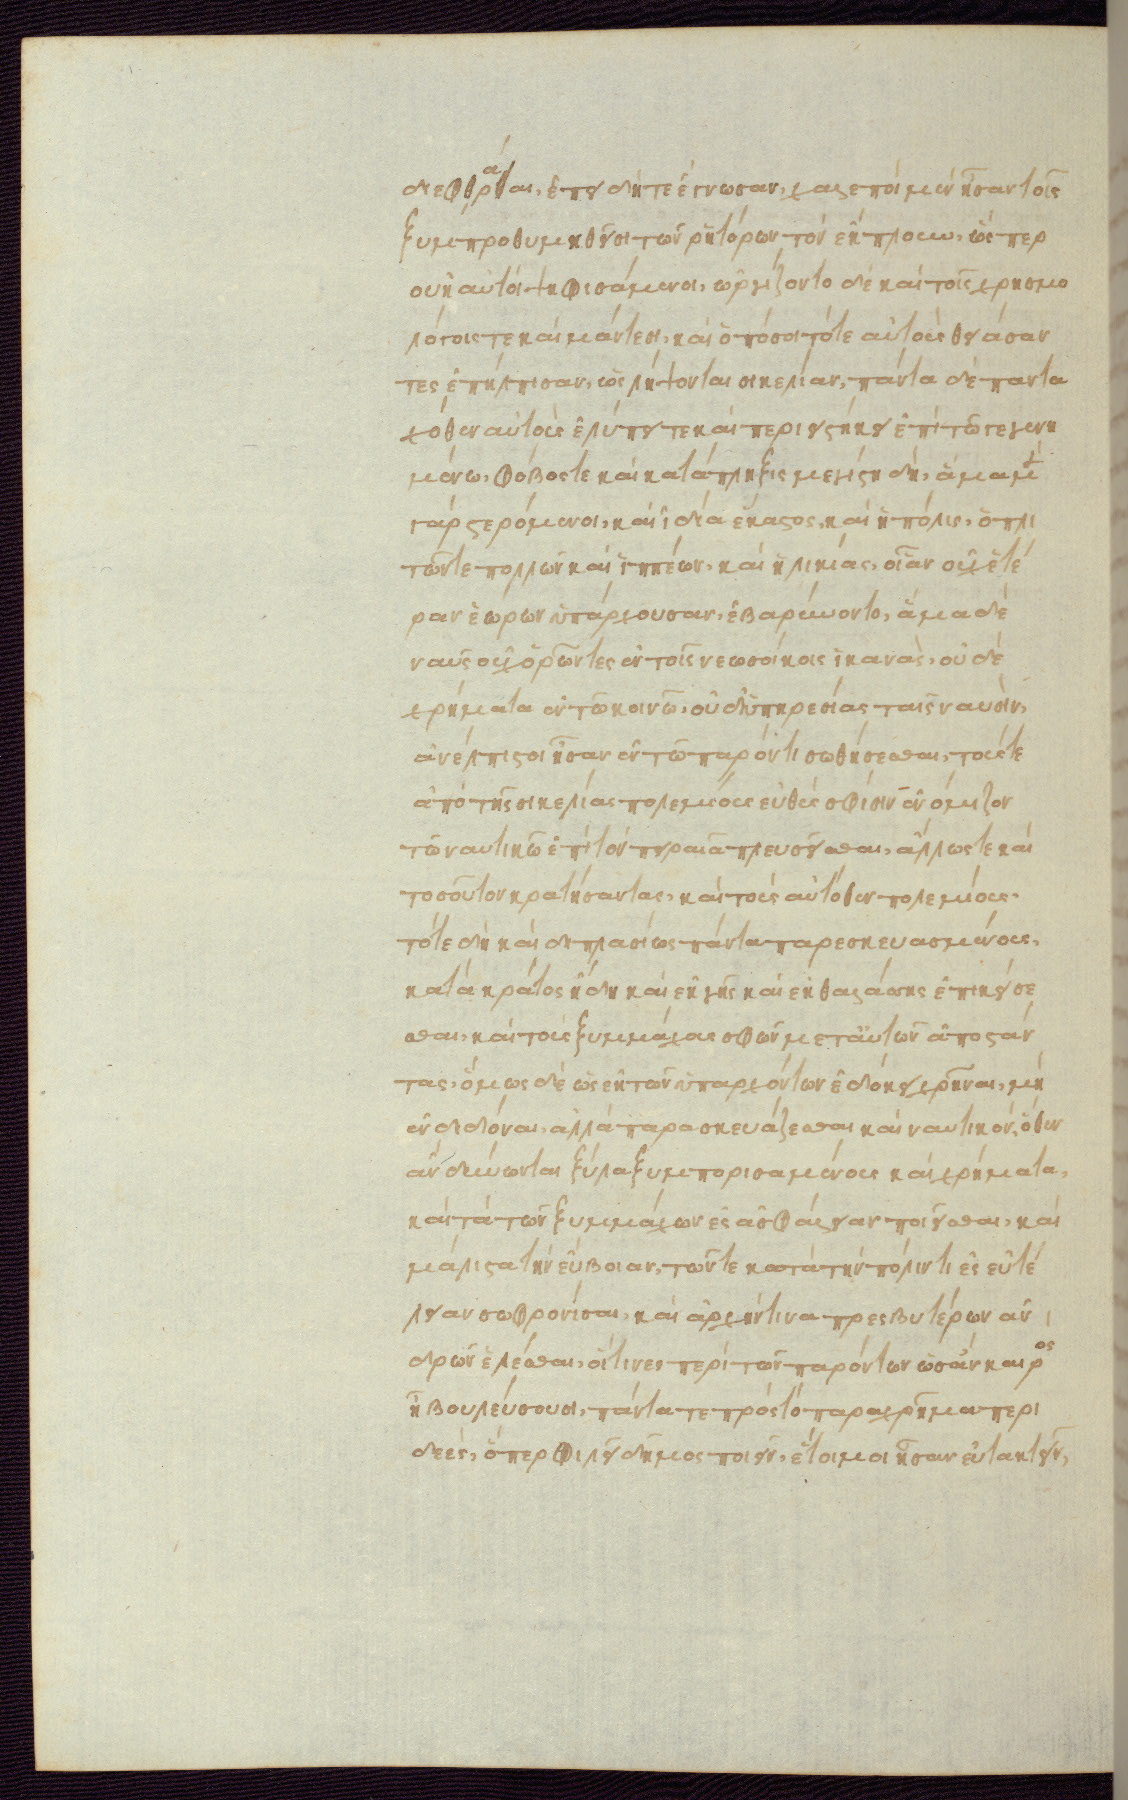 διεφθάρθαι, ἐπειδή τε ἔγνωσαν, χαλεποὶ μὲν ἦσαν τοῖς
ξυμπροθυμηθεῖσι τῶν ῥητόρων τὸν ἔκπλουν, ὥσπερ
οὐκ αὐτοὶ ψηφισάμενοι, ὠργίζοντο δὲ καὶ τοῖς χρησμο
λόγοις τε καὶ μάντεσι, καὶ ὁπόσοι τότε αὐτοὺς θειάσαν
τες ἐπήλπισαν, ὡς λήψονται σικελίαν, πάντα δὲ παντα
χόθεν αὐτοὺς ἐλύπει τε καὶ περιειστήκει ἐπὶ τῶ γεγενη
μένω, φόβος τε καὶ κατάπληξις μεγίστη δή, ἅμα μὲν
γὰρ στερόμενοι, καὶ ἰδία ἕκαστος, καὶ ἡ πόλις, ὁπλι
τῶν τε πολλῶν καὶ ἱππέων, καὶ ἡλικίας, οἵαν οὐχ ἑτέ
ραν ἑώρων ὑπάρχουσαν, ἐβαρύνοντο, ἅμα δὲ
ναῦς οὐχ ὁρῶντες ἐν τοῖς νεωσοίκοις ἱκανὰς, οὐδὲ
χρήματα ἐν τῶ κοινῶ, οὐδ' ὑπηρεσίας ταῖς ναυσίν,
ἀνέλπιστοι ἦσαν ἐν τῶ παρόντι σωθήσεσθαι, τούς τε
ἀπὸ τῆς σικελίας πολεμίους εὐθὺς σφίσιν ἐνόμιζον
τῶ ναυτικῶ ἐπὶ τὸν πειραιᾶ πλευσεῖσθαι, ἄλλως τε καὶ
τοσοῦτον κρατήσαντας, καὶ τοὺς αὐτόθεν πολεμίους,
τότε δὴ καὶ διπλασίως πάντα παρεσκευασμένους,
κατὰ κράτος ἤδη καὶ ἐκ γῆς καὶ ἐκ θαλάσσης ἐπικείσε
σθαι, καὶ τοὺς ξυμμάχους σφῶν μετ' αὐτῶν ἀποστάν
τας, ὅμως δὲ ὡς ἐκ τῶν ὑπαρχόντων ἐδόκει χρῆναι, μὴ
ἐνδιδόναι, ἀλλὰ παρασκευάζεσθαι καὶ ναυτικόν, ὅθεν
ἂν δύνωνται ξύλα ξυμπορισαμένους καὶ χρήματα,
καὶ τὰ τῶν ξυμμάχων ἐς ἀσφάλειαν ποιεῖσθαι, καὶ
μάλιστα τὴν εὔβοιαν, τῶν τε κατὰ τὴν πόλιν τι ἐς εὐτέ
λειαν σωφρονίσαι, καὶ ἀρχήν τινα πρεσβυτέρων ἀν
δρῶν ἑλέσθαι, οἵτινες περὶ τῶν παρόντων ὡς ἂν καιρὸς
ἦ βουλεύσουσι, πάντα τε πρὸς τὸ παραχρῆμα περι
δεὲς, ὅπερ φιλεῖ δῆμος ποιεῖν, ἕτοιμοι ἦσαν εὐτακτεῖν,